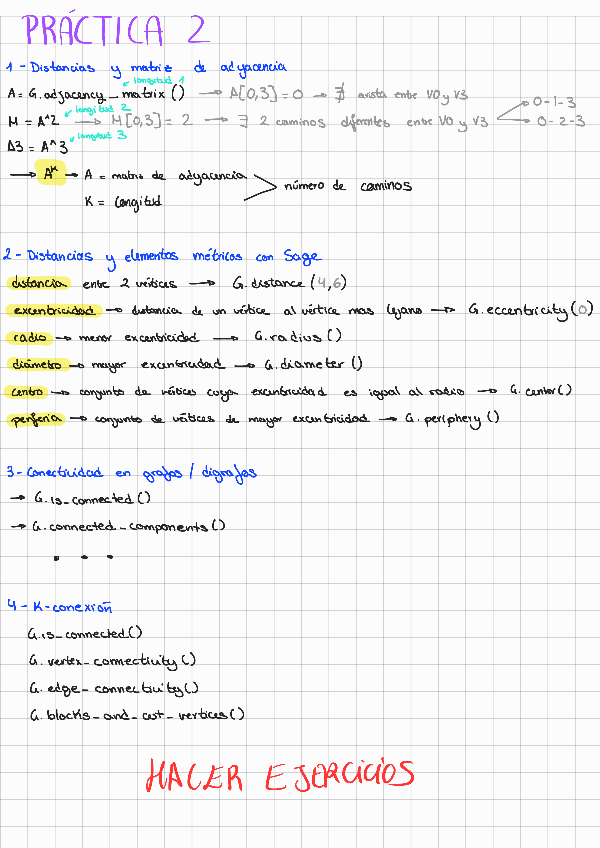 PRÁCTICA 2
1 - Distancias y matriz de adyacencia
longitud 1
A = G.adjacency_matrix() → A[0,3] = 0 → ∄ arista entre V0 y V3
longitud 2
0-1-3
M = A^2 → M[0,3] = 2 → ∃ 2 caminos diferentes entre V0 y V3
0-2-3
longitud 3
A3 = A^3
→ Aᴷ → A = matriz de adyacencia
número de caminos
K = longitud
2 - Distancias y elementos métricos con Sage
distancia entre 2 vértices → G.distance(4,6)
excentricidad → distancia de un vértice al vértice mas lejano → G.eccentricity(0)
radio → menor excentricidad → G.radius()
diámetro → mayor excentricidad → G.diameter()
centro → conjunto de vértices cuya excentricidad es igual al radio → G.center()
periferia → conjunto de vértices de mayor excentricidad → G.periphery()
3 - Conectividad en grafos / digrafos
→ G.is_connected()
→ G.connected_components()
. . .
4 - K-conexión
G.is_connected()
G.vertex_connectivity()
G.edge_connectivity()
G.blocks_and_cut_vertices()
HACER EJERCICIOS